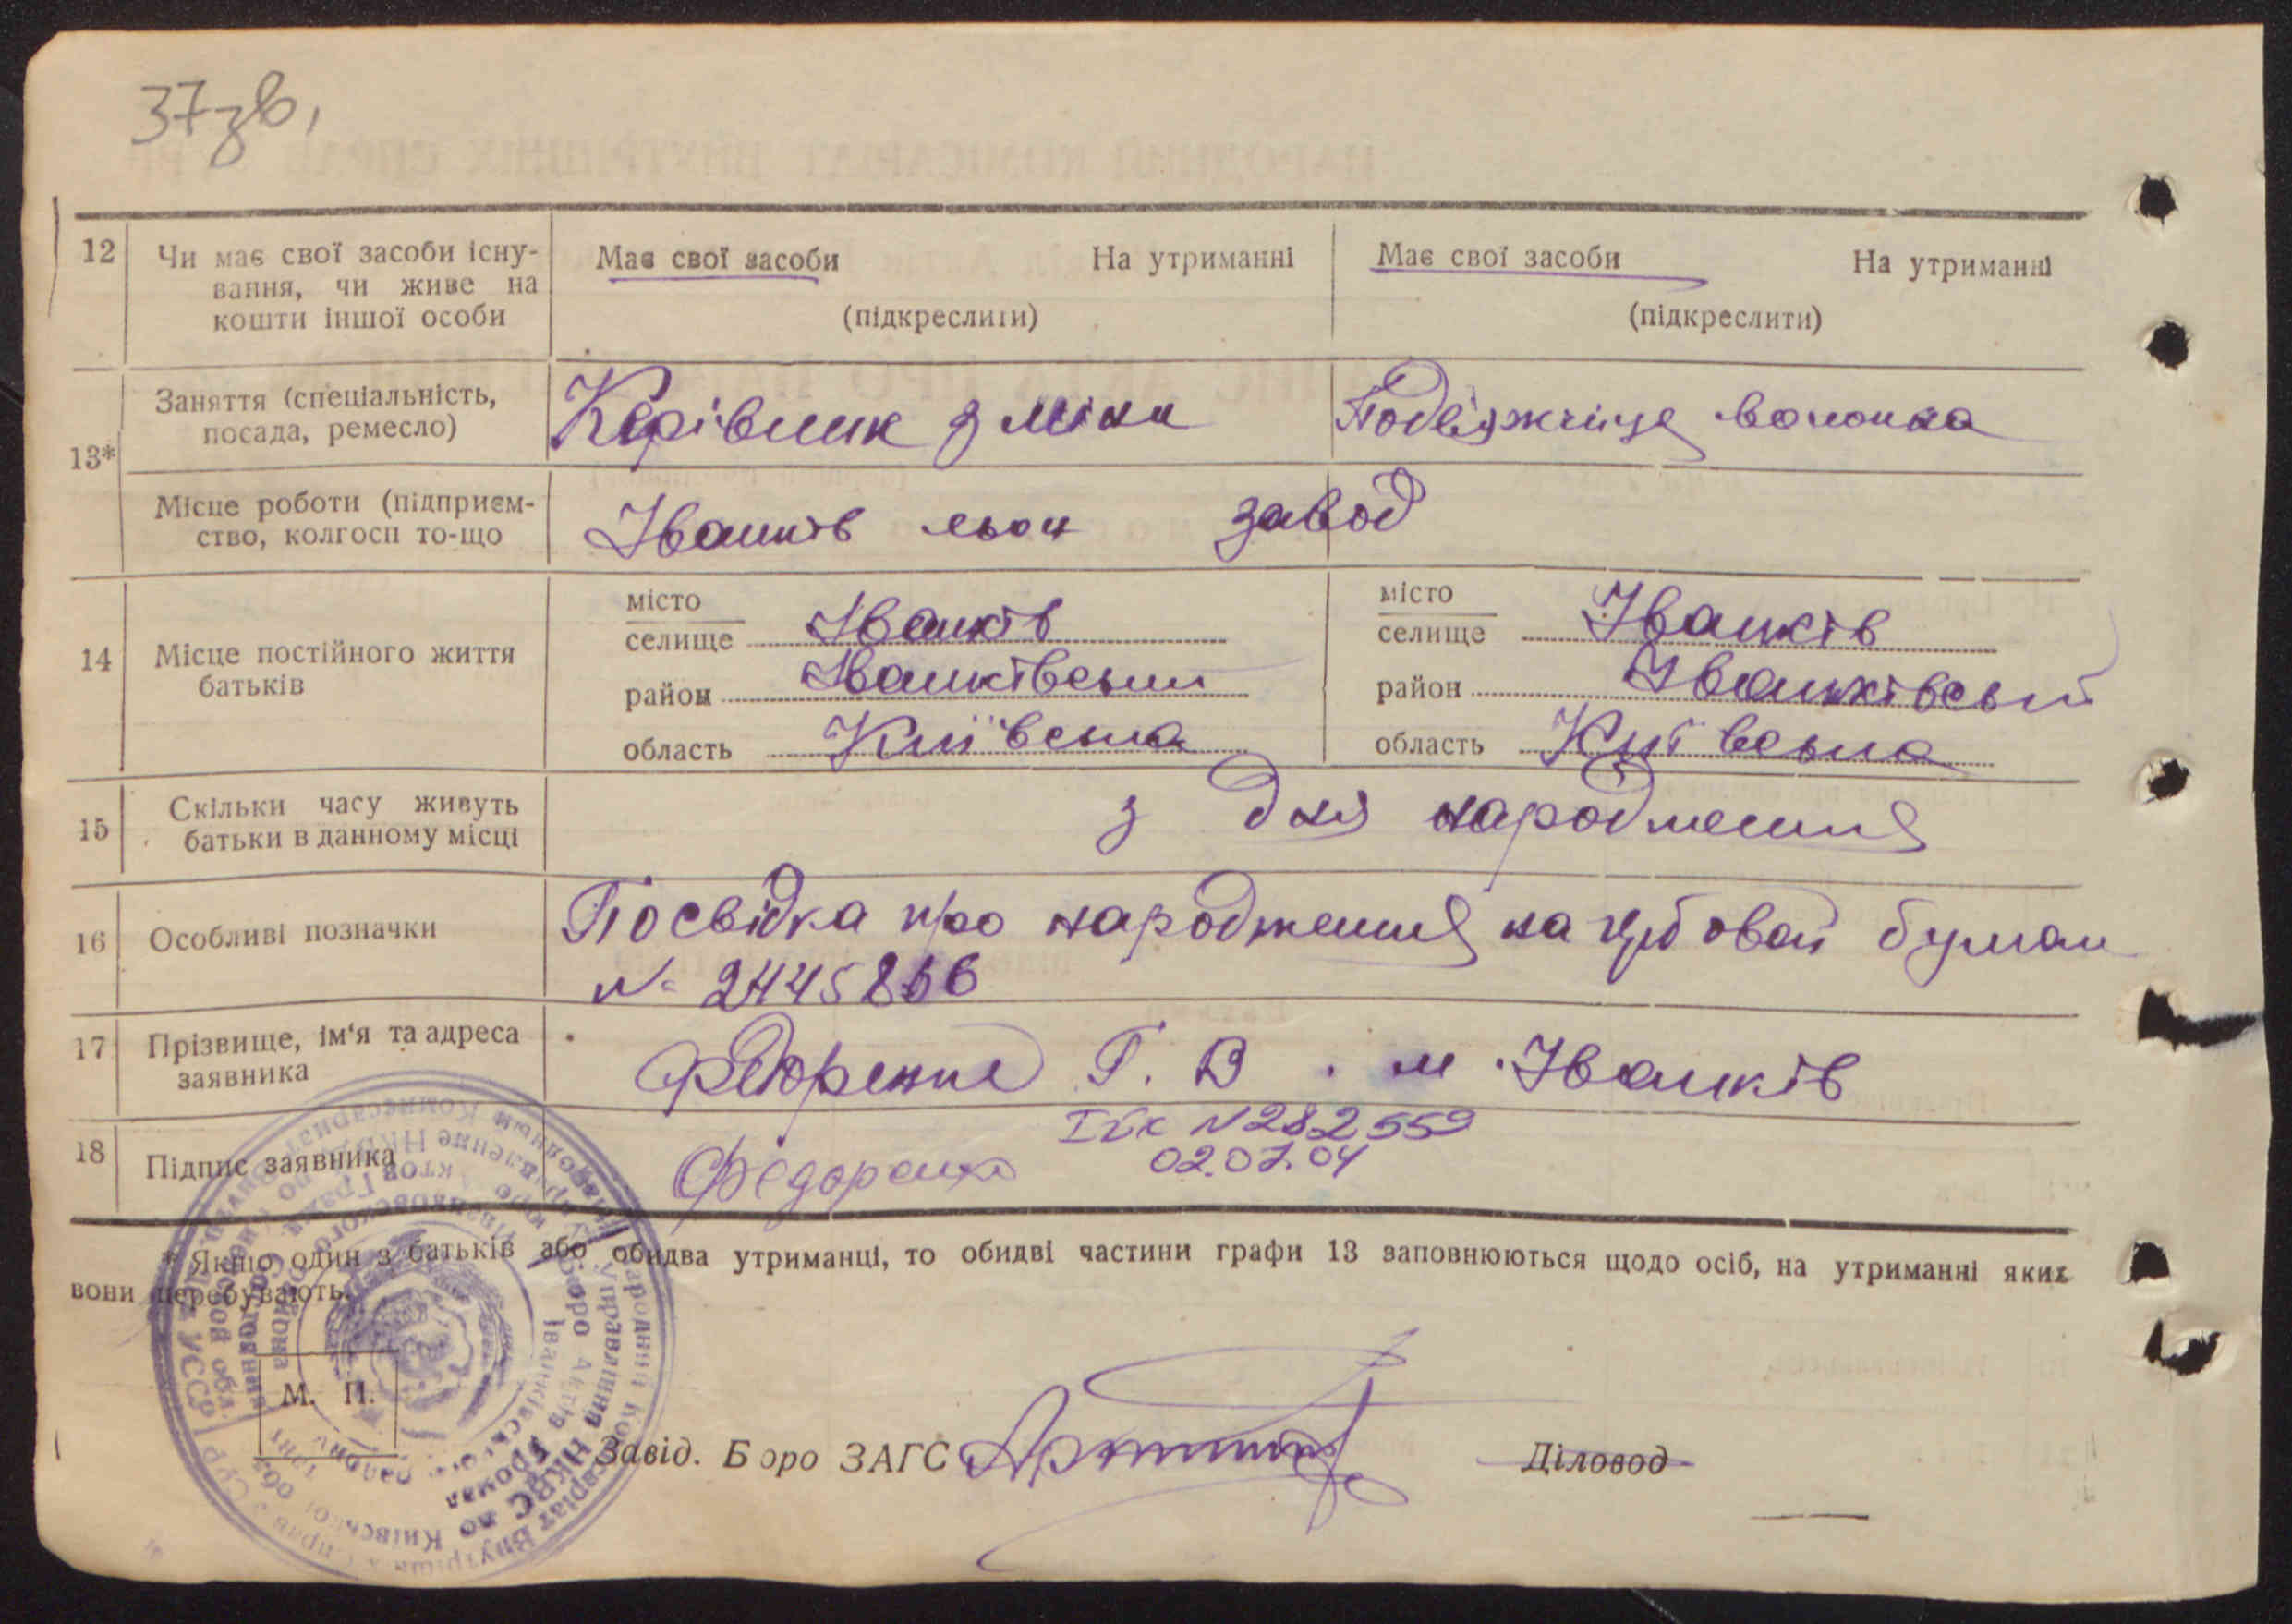 37зв,
12 Чи має свої засоби існу-
вання, чи живе на
кошти іншої особи
Має свої засоби На утриманні
(підкреслити)
Має свої засоби На утриманні
(підкреслити)
13*
Заняття (спеціальність,
посада, ремесло)
Керівник зміни
Місце роботи (підприєм-
ство, колгосп то-що
Іванків льон завод
14 Місце постійного життя
батьків
місто
селище Іванків
район Іванківський
область Київська
місто
селище Іванків
район Іванківський
область Київська
15 Скільки часу живуть
батьки в данному місці
з дня народження
16 Особливі позначки
Посвідка про народження на гербовой бумаи
№ 2445856
17 Прізвище, ім'я та адреса
заявника
Федоренко Г. В. м. Іванків
18 Підпис заявника
Федоренко
N282559
02.07.04
* Якщо один з батьків або обидва утриманці, то обидві частини графи 13 заповнюються щодо осіб, на утриманні яких
вони перебувають.
М. П.
Завід. Бюро ЗАГС
Діловод